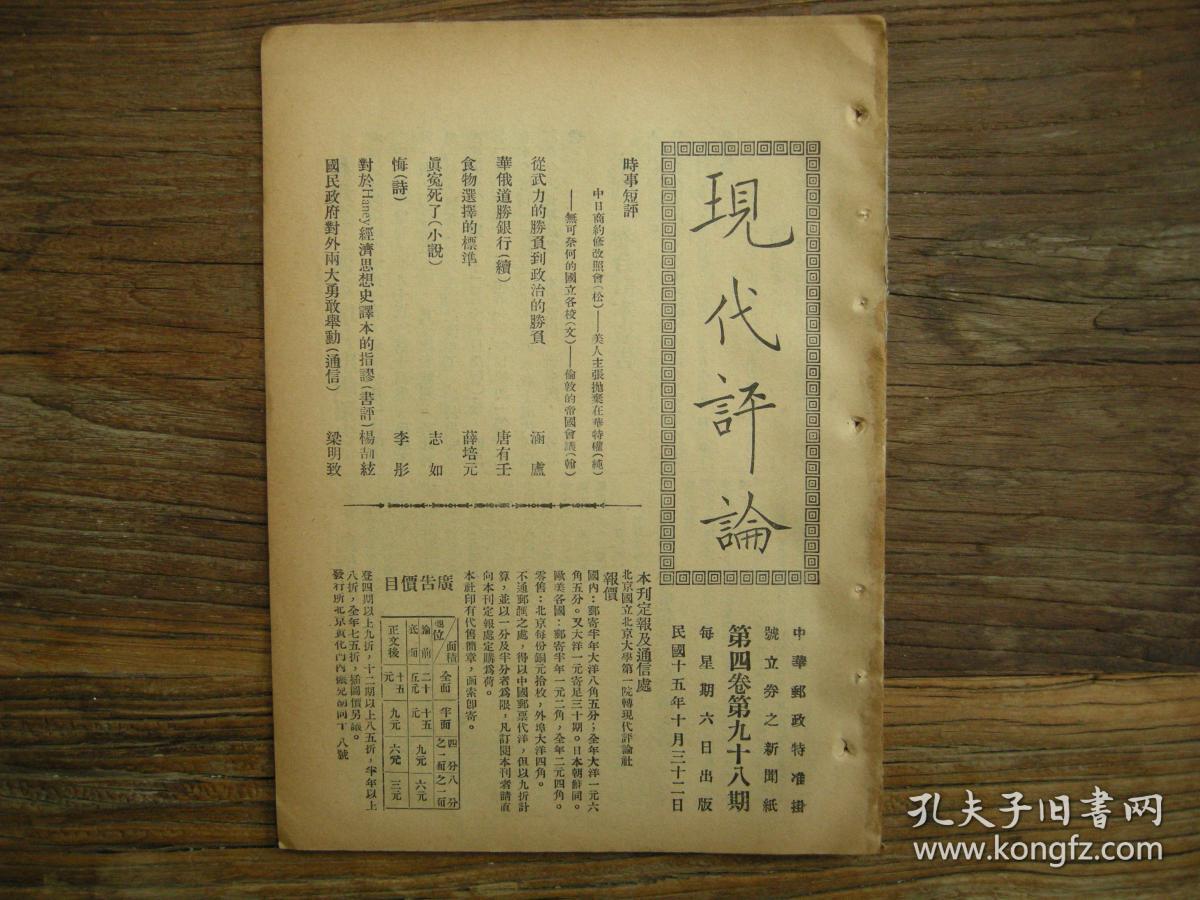 現代評論
中華郵政特准掛
號立券之新聞紙
第四卷第九十八期
每星期六日出版
民國十五年十月三十二日
時事短評
中日商約修改照會(松)——美人主張拋棄在華特權(純)
——無可奈何的國立各校(文)——倫敦的帝國會議(翰)
從武力的勝負到政治的勝負 涵廬
華俄道勝銀行(續) 唐有壬
食物選擇的標準 薛培元
眞冤死了(小說) 志如
悔(詩) 李彤
對於Haney經濟思想史譯本的指謬(書評) 楊
國民政府對外兩大勇敢舉動(通信) 梁明致
本刊定報及通信處
北京國立北京大學第一院轉現代評論社
報價
國內：郵寄半年大洋八角五分；全年大洋一元六
角五分。又大洋一元寄足三十期。日本朝鮮同。
歐美各國：郵寄半年一元二角，全年二元四角。
零售：北京每份銅元拾枚，外埠大洋四角。
不通郵匯之處，得以中國郵票代洋，但以九折計
算，並以一分及半分者爲限，凡訂閱本刊者請直
向本刊定報處定購爲荷。
本社印有代售簡章，函索卽寄。
廣告價目
面積 全面 半面 四分之一面 八分之一面
位
前 二十五元 十五元 九元 六元
正文後 十五元 九元 六元 三元
登四期以上九折，十二期以上八五折，半年以上
八折，全年七五折，插圖價另議。
發行所北京 八號
孔夫子旧书网
www.kongfz.com